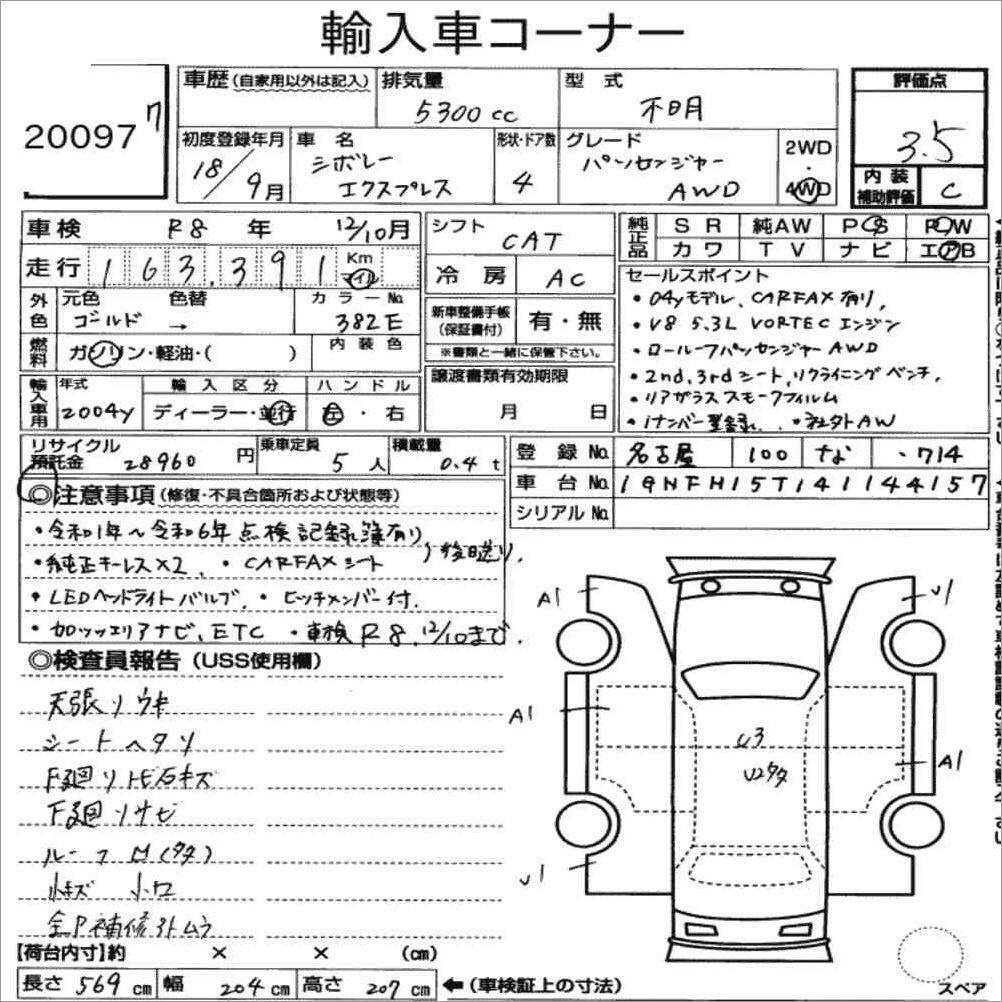 輸入車コーナー
20097
7
車歴(自家用以外は記入)
排気量
5300cc
型式
不明
評価点
3.5
初度登録年月
18/9月
車名
シボレー
エクスプレス
形状・ドア数
4
グレード
パッセンジャー
AWD
2WD
・
4WD
内装
補助評価
C
車検 R8年 12/10月
走行 163,391 Km マイル
シフト CAT
冷房 AC
純正品
SR 純AW PS PW
カワ TV ナビ エアB
外色
元色 色替 カラーNo.
ゴールド → 382E
燃料
ガソリン・軽油・( )
内装色
新車整備手帳
(保証書付)
有・無
※書類と一緒に保管下さい。
セールスポイント
・04yモデル、CARFAX有り,
・V8 5.3L VORTECエンジン
・ロールーフパッセンジャーAWD
・2nd,3rdシート,リクライニングベンチ,
・リアガラススモークフィルム
・1ナンバー登録. ・社外AW
輸入車用
年式
2004y
輸入区分
ディーラー・並行
ハンドル
左・右
譲渡書類有効期限
月 日
リサイクル
預託金 28960円
乗車定員
5人
積載量
0.4t
登録No. 名古屋 100 な ・714
車台No. 1GNFH15T141144157
シリアルNo.
◎注意事項(修復・不具合箇所および状態等)
・令和1年~令和6年点検記録簿有り
・純正キーレス×2, ・CARFAXシート
)後日送り,
・LEDヘッドライトバルブ, ・ヒッチメンバー付.
・カロッツェリアナビ、ETC ・車検R8,12/10まで.
◎検査員報告(USS使用欄)
天張リウキ
シートヘタリ
F廻リトビ石キズ
下廻リサビ
ルーフ凹(タタ)
小キズ 小凹
全P補修跡ムラ
A1
U1
A1
U3
U2タタ
A1
U1
【荷台内寸】約 × × (cm)
長さ569cm 幅204cm 高さ207cm ←(車検証上の寸法)
スペア